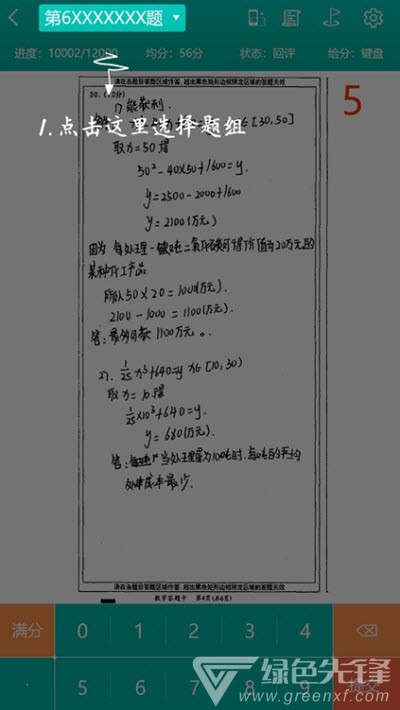 第6XXXXXXX题
进度：10002/12000 均分：56分 状态：回评 给分：键盘
请在各题目答题区域作答，超出黑色矩形边框限定区域的答题无效
5
20. (12分)
1) 能获利.
1.点击这里选择题组
x∈[30,50]
取x=50 得
50²-40×50+1600=y.
y=2500-2000+1600
y=2100(万元)
因为 每处理一吨二氧化碳可得价值为20万元的
某种化工产品
所以 50×20=1000(万元).
2100-1000=1100(万元).
答: 1100万元。
2). 1/25 x³+640=y x∈[10,30)
取x=10得
1/25×10³+640=y.
y=680(万元).
答: 当处理量为10吨时,每吨的平均
处理成本最少.
请在各题目答题区域作答，超出黑色矩形边框限定区域的答题无效
数学答题卡 第4页(共6页)
满分 0 1 2 3 4
. 5 6 7 8 9 提交
绿色先锋
www.greenxf.com